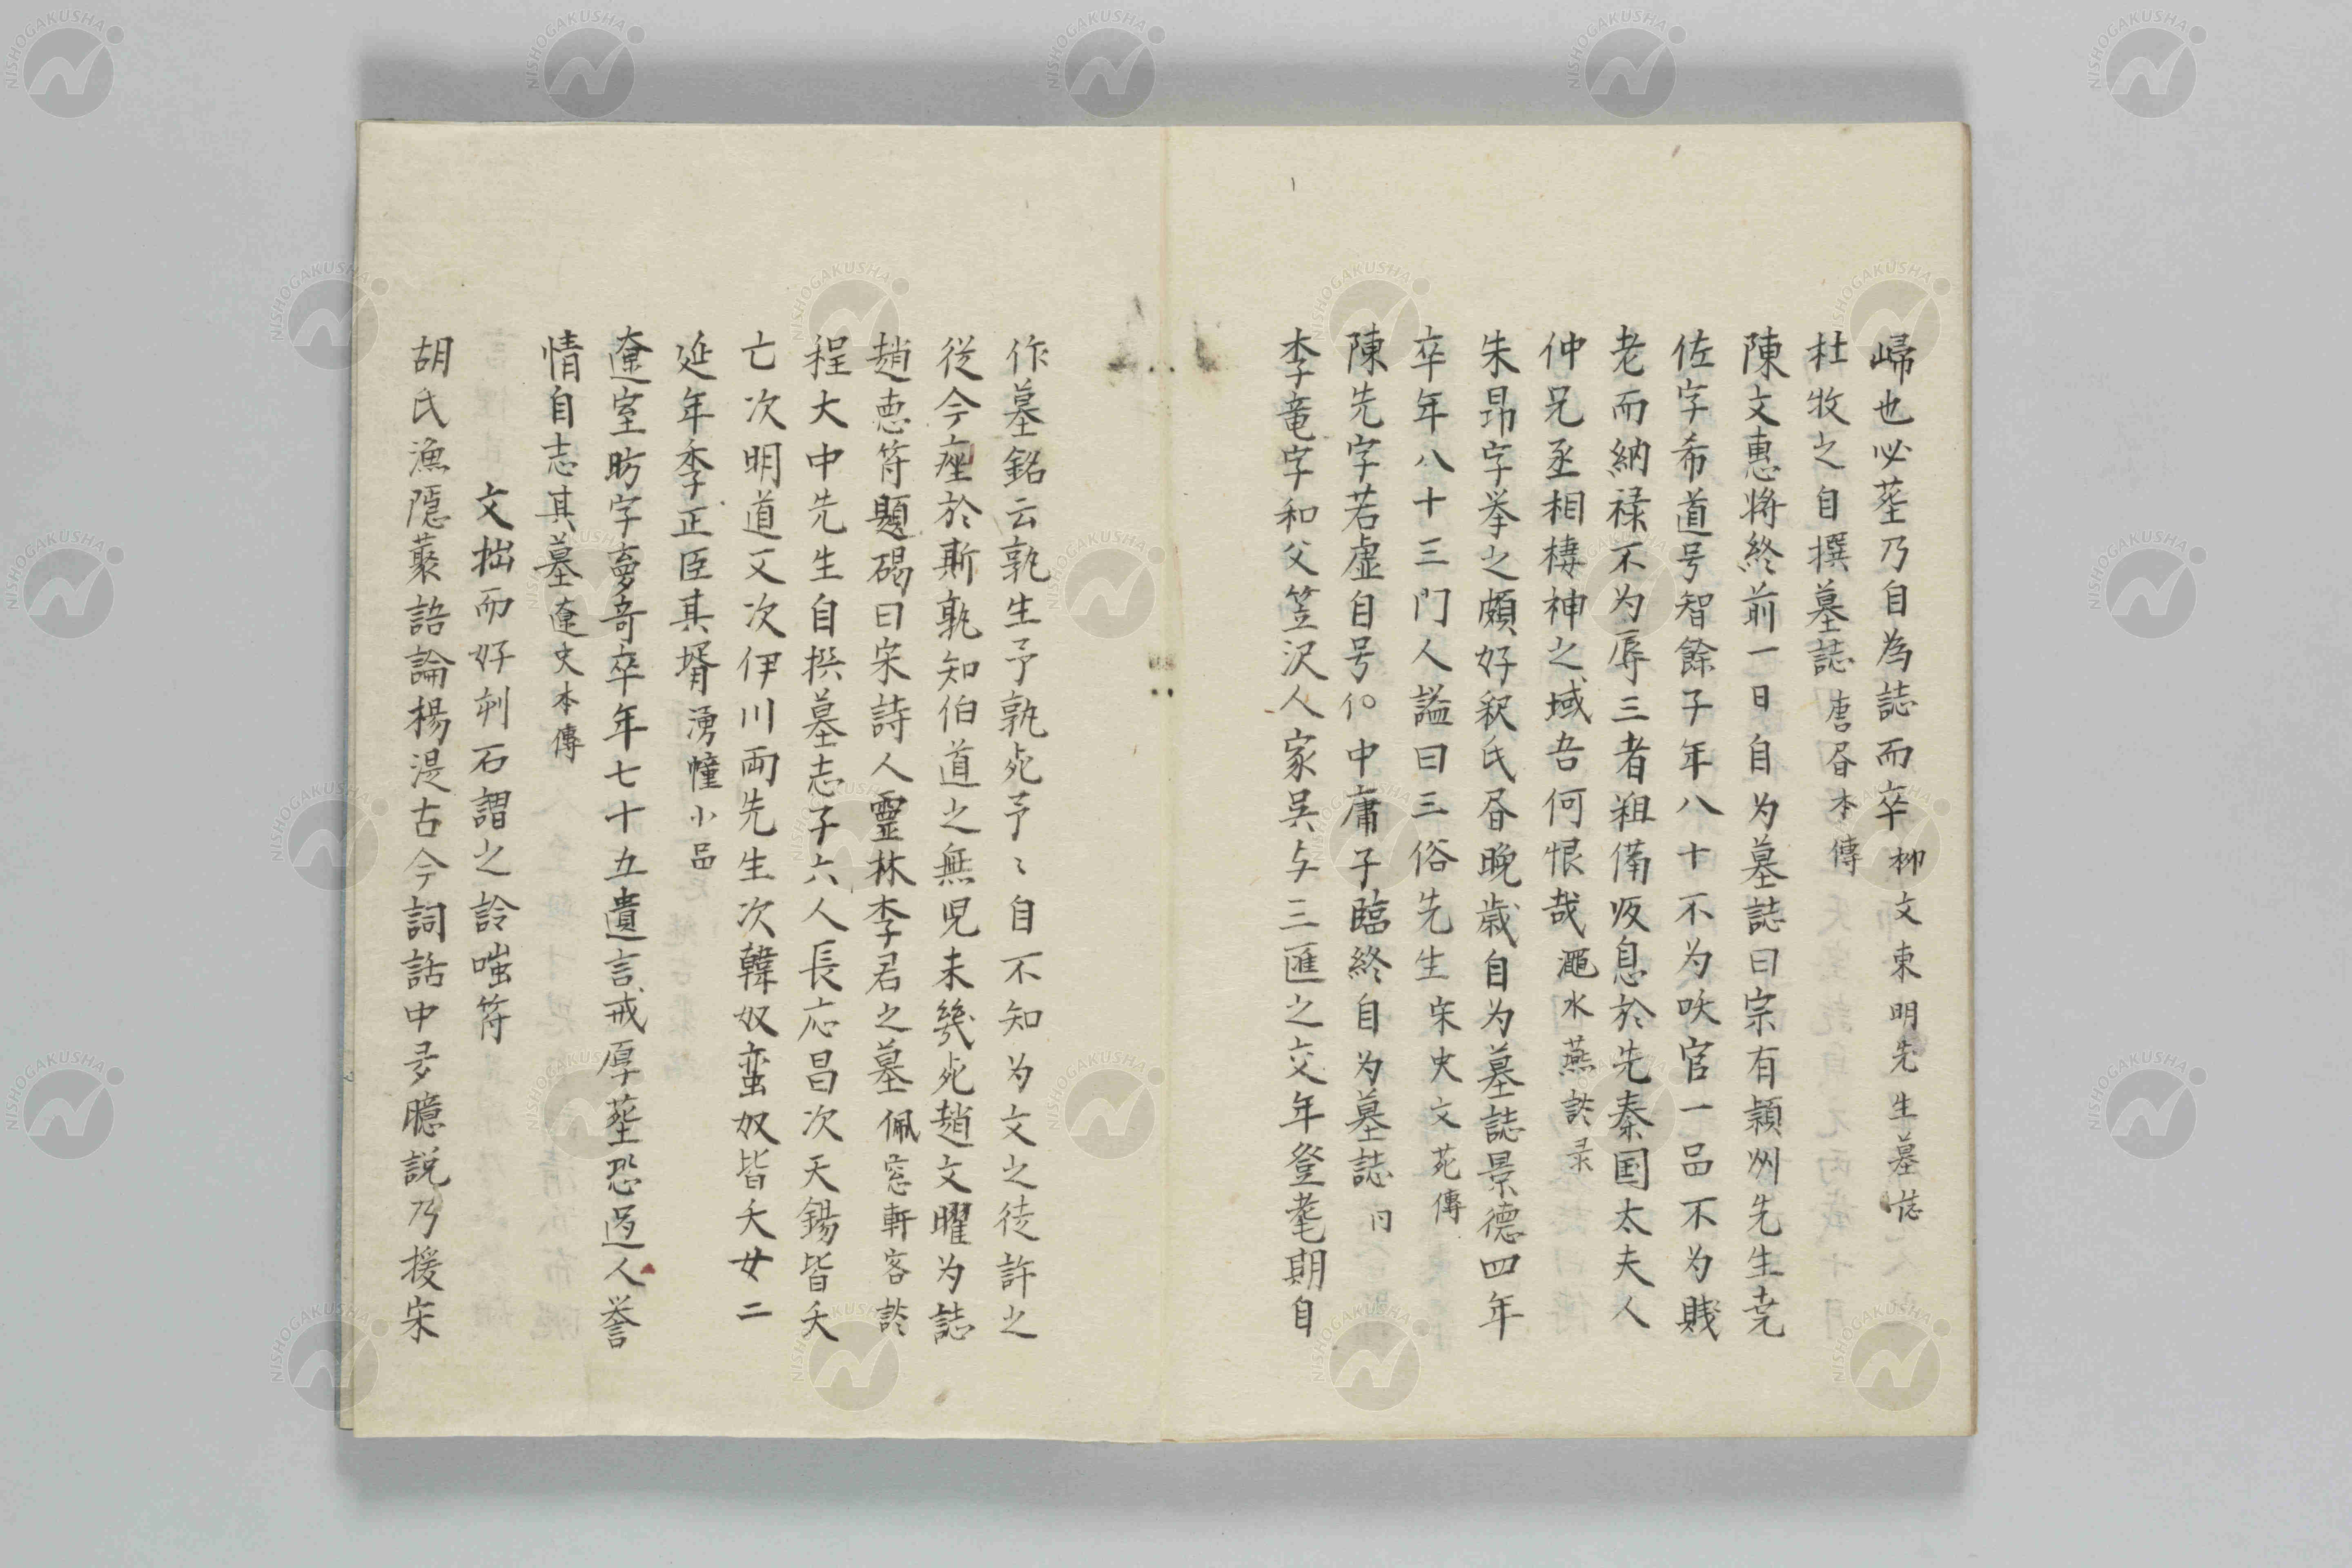 歸也必葬乃自為誌而卒柳文東明先生墓誌
杜牧之自撰墓誌唐昏本傳
陳文惠将終前一日自为墓誌曰宗有頴州先生尭
佐字希道号智餘子年八十不为吷官一品不为賎
老而納禄不为辱三者粗俻収息於先秦国太夫人
仲兄丞相棲神之域吾何恨哉澠水燕談录
朱昂字挙之頗好釈氏昏晚歳自为墓誌景徳四年
卒年八十三門人謚曰三俗先生宋史文苑傳
陳先字若虚自号中庸子臨終自为墓誌
李竜字和父笠沢人家呉与三匯之交年登耄期自
作墓銘云孰生予孰死予〻自不知为文之徒許之
従今座於斯孰知伯道之無児未幾死趙文曜为誌
趙恵符題碣曰宋詩人靈林李君之墓佩窓軒客談
程大中先生自撰墓志子六人長応昌次天錫皆夭
亡次明道又次伊川両先生次韓奴蛮奴皆夭女二
延年李正臣其壻湧幢小品
遼室昉字夢奇卒年七十五遺言戒厚葬恐過人誉
情自志其墓遼史本傳
文拙而好刻石謂之詅嗤符
胡氏漁隠藂語論楊湜古今詞話中多臆説乃援宋
NISHOGAKUSHA